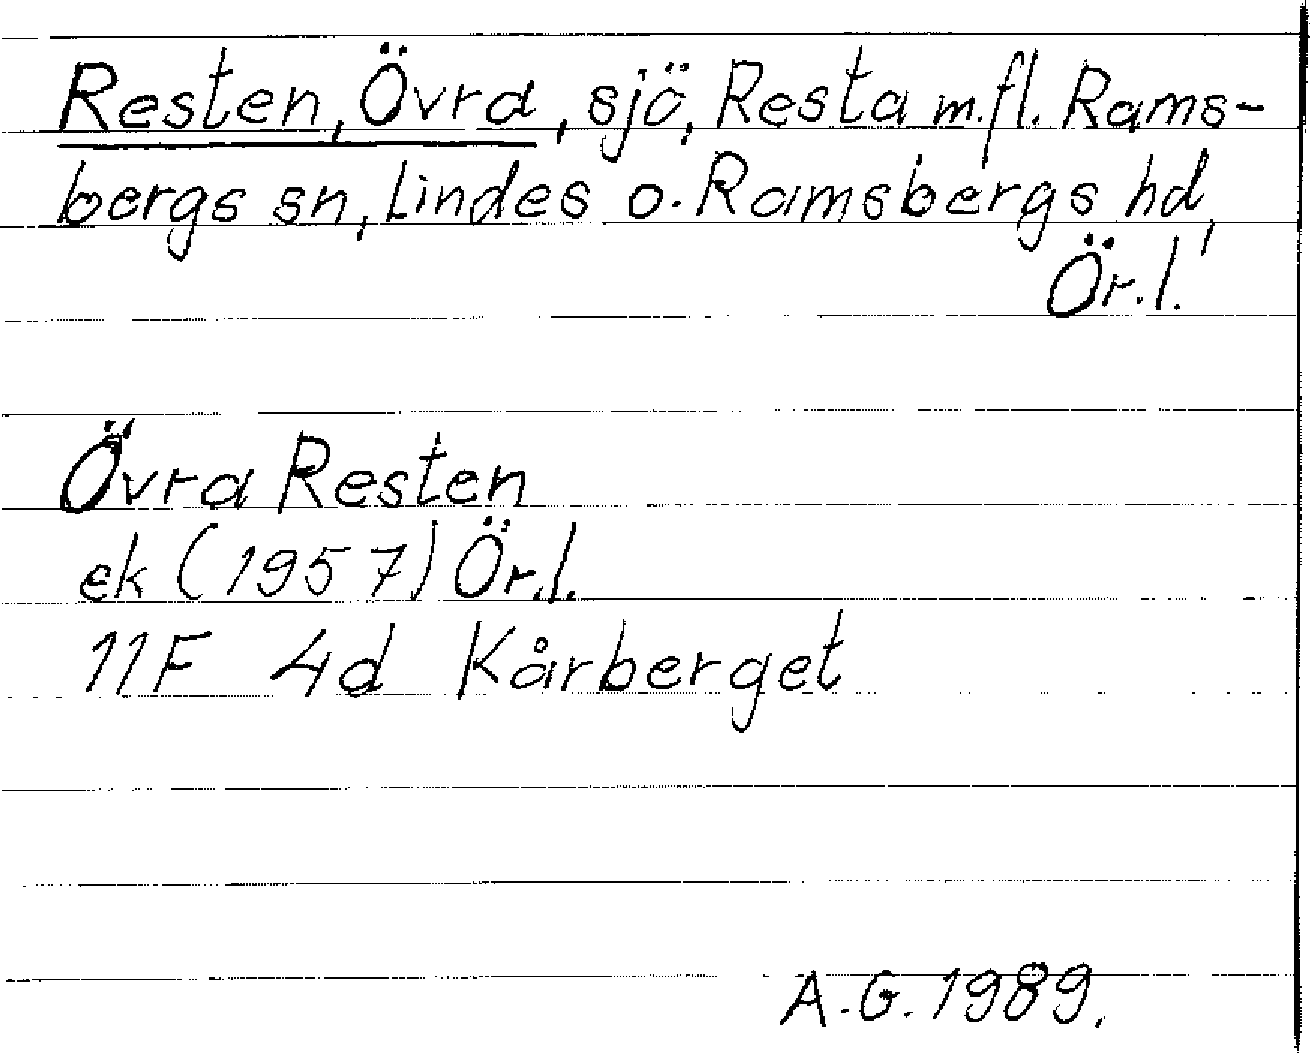 Resten, Övra, sjö, Resta m.fl. Rams-
bergs sn, Lindes o. Ramsbergs hd,
Ör.l.
Övra Resten
ek (1957) Ör.l.
11F 4d Kårberget
A.G. 1989.